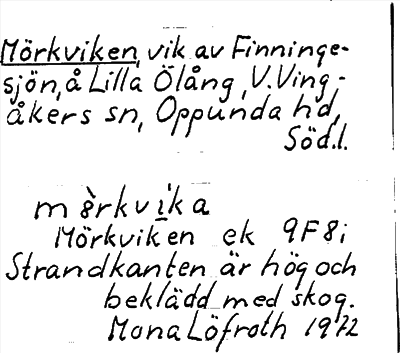 Mörkviken, vik av Finninge-
sjön, å Lilla Ölång, V.Ving-
åkers sn, Oppunda hd,
Söd.l.
m ȣ̀rkvi̱ka
Mörkviken ek 9F8i
Strandkanten är hög och
beklädd med skog.
Mona Löfroth 1972